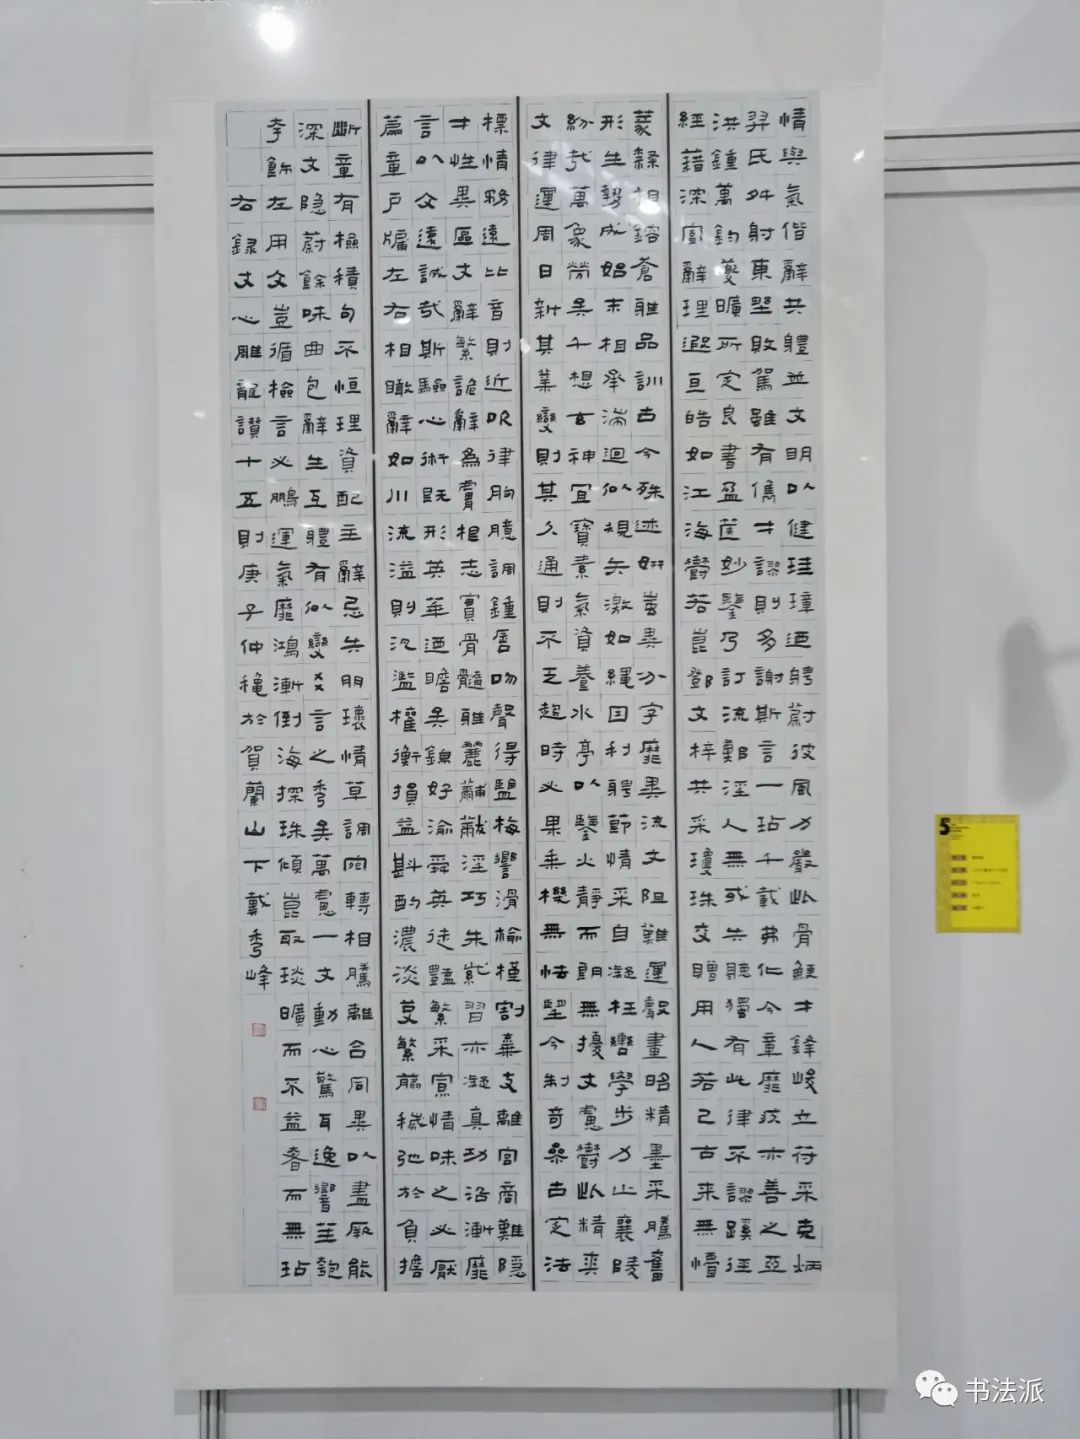 情與氣偕辭共體並文明以健珪璋迺騁蔚彼風力嚴此骨鯁才鋒峻立符采克炳
羿氏舛射東埜敗駕雖有儁才謬則多謝斯言一玷千載弗化今章靡疚亦善之亞
洪鍾萬鈞夔曠所定良書盈篋妙鑒乃訂流鄭淫人無或失聽獨有此律不謬蹊徑
經籍深富辭理遐亘皓如江海鬱若崑鄧文梓共采瓊珠交贈用人若己古來無懵
篆隸相鎔蒼雅品訓古今殊迹妍蚩異分字靡異流文阻難運聲畫昭精墨采騰奮
形生勢成始末相承湍迴似規矢激如繩因利騁節情采自凝枉轡學步力止襄陵
紛哉萬象勞矣千想玄神宜寶素氣資養水亭以鑒火靜而朗無擾文慮鬱此精爽
文律運周日新其業變則其久通則不乏趨時必果乘機無怯望今制奇參古定法
標情務遠比音則近吹律胸臆調鍾脣吻聲得鹽梅響滑榆槿割棄支離宮商難隱
才性異區文辭繁詭辭為膚根志實骨髓雅麗黼黻淫巧朱紫習亦凝真功沿漸靡
言以文遠誠哉斯驗心術既形英華迺贍吳錦好渝舜英徒豔繁采寡情味之必厭
篇章戶牖左右相瞰辭如川流溢則汎濫權衡損益斟酌濃淡芟繁剪穢弛於負擔
斷章有檢積句不恒理資配主辭忌失朋環情草調宛轉相騰離合同異以盡厥能
深文隱蔚餘味曲包辭生互體有似變爻言之秀矣萬慮一交動心驚耳逸響笙匏
夸飾在用文豈循檢言必鵬運氣靡鴻漸倒海探珠傾崑取琰曠而不益奢而無玷
右録文心雕龍讃十五則庚子仲穐於賀蘭山下戴秀峰
5
书法派